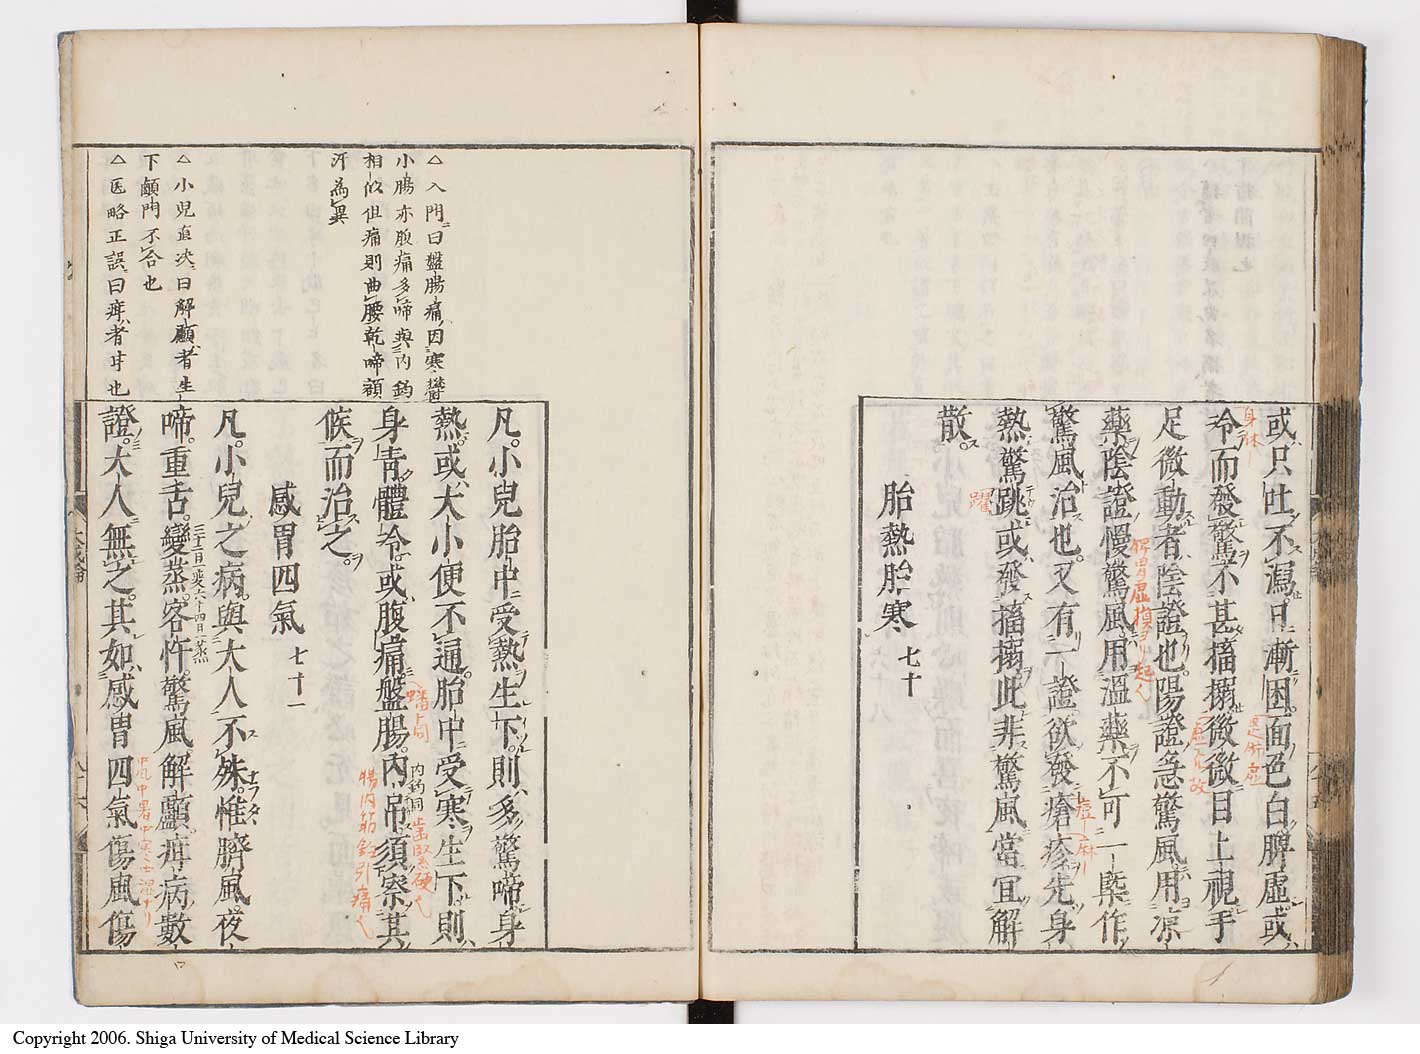 或只吐不瀉日漸困面色白脾虚或
冷而發驚不甚搐搦微微目上視手
足微動者陰證也陽證急驚風用凉
藥陰證慢驚風用溫藥不可一槩作
驚風治也又有一證欲發瘡疹先身
熱驚跳或發搐搦此非驚風當宜解
散
胎熱胎寒 七十
△入門曰盤腸痛因寒鬱
小腸亦腹痛多啼與内釣
相似但痛則曲腰乾啼額
汗為異
△小兒直决曰解顱者生
下顱門不合也
△医略正誤曰疳者甘也
凡小兒胎中受熱生下則多驚啼身
熱或大小便不通胎中受寒生下則
身青體冷或腹痛盤腸内吊須察其
内釣同
候而治之
感冒四氣 七十一
凡小兒之病與大人不殊惟臍風夜
啼重舌變蒸客忤驚風解顱疳病數
三十二日一變六十四日一蒸
證大人無之其如感冒四氣傷風傷
身体
脾胃虚損ヨリ起ル
躍
大成論
Copyright 2006. Shiga University of Medical Science Library